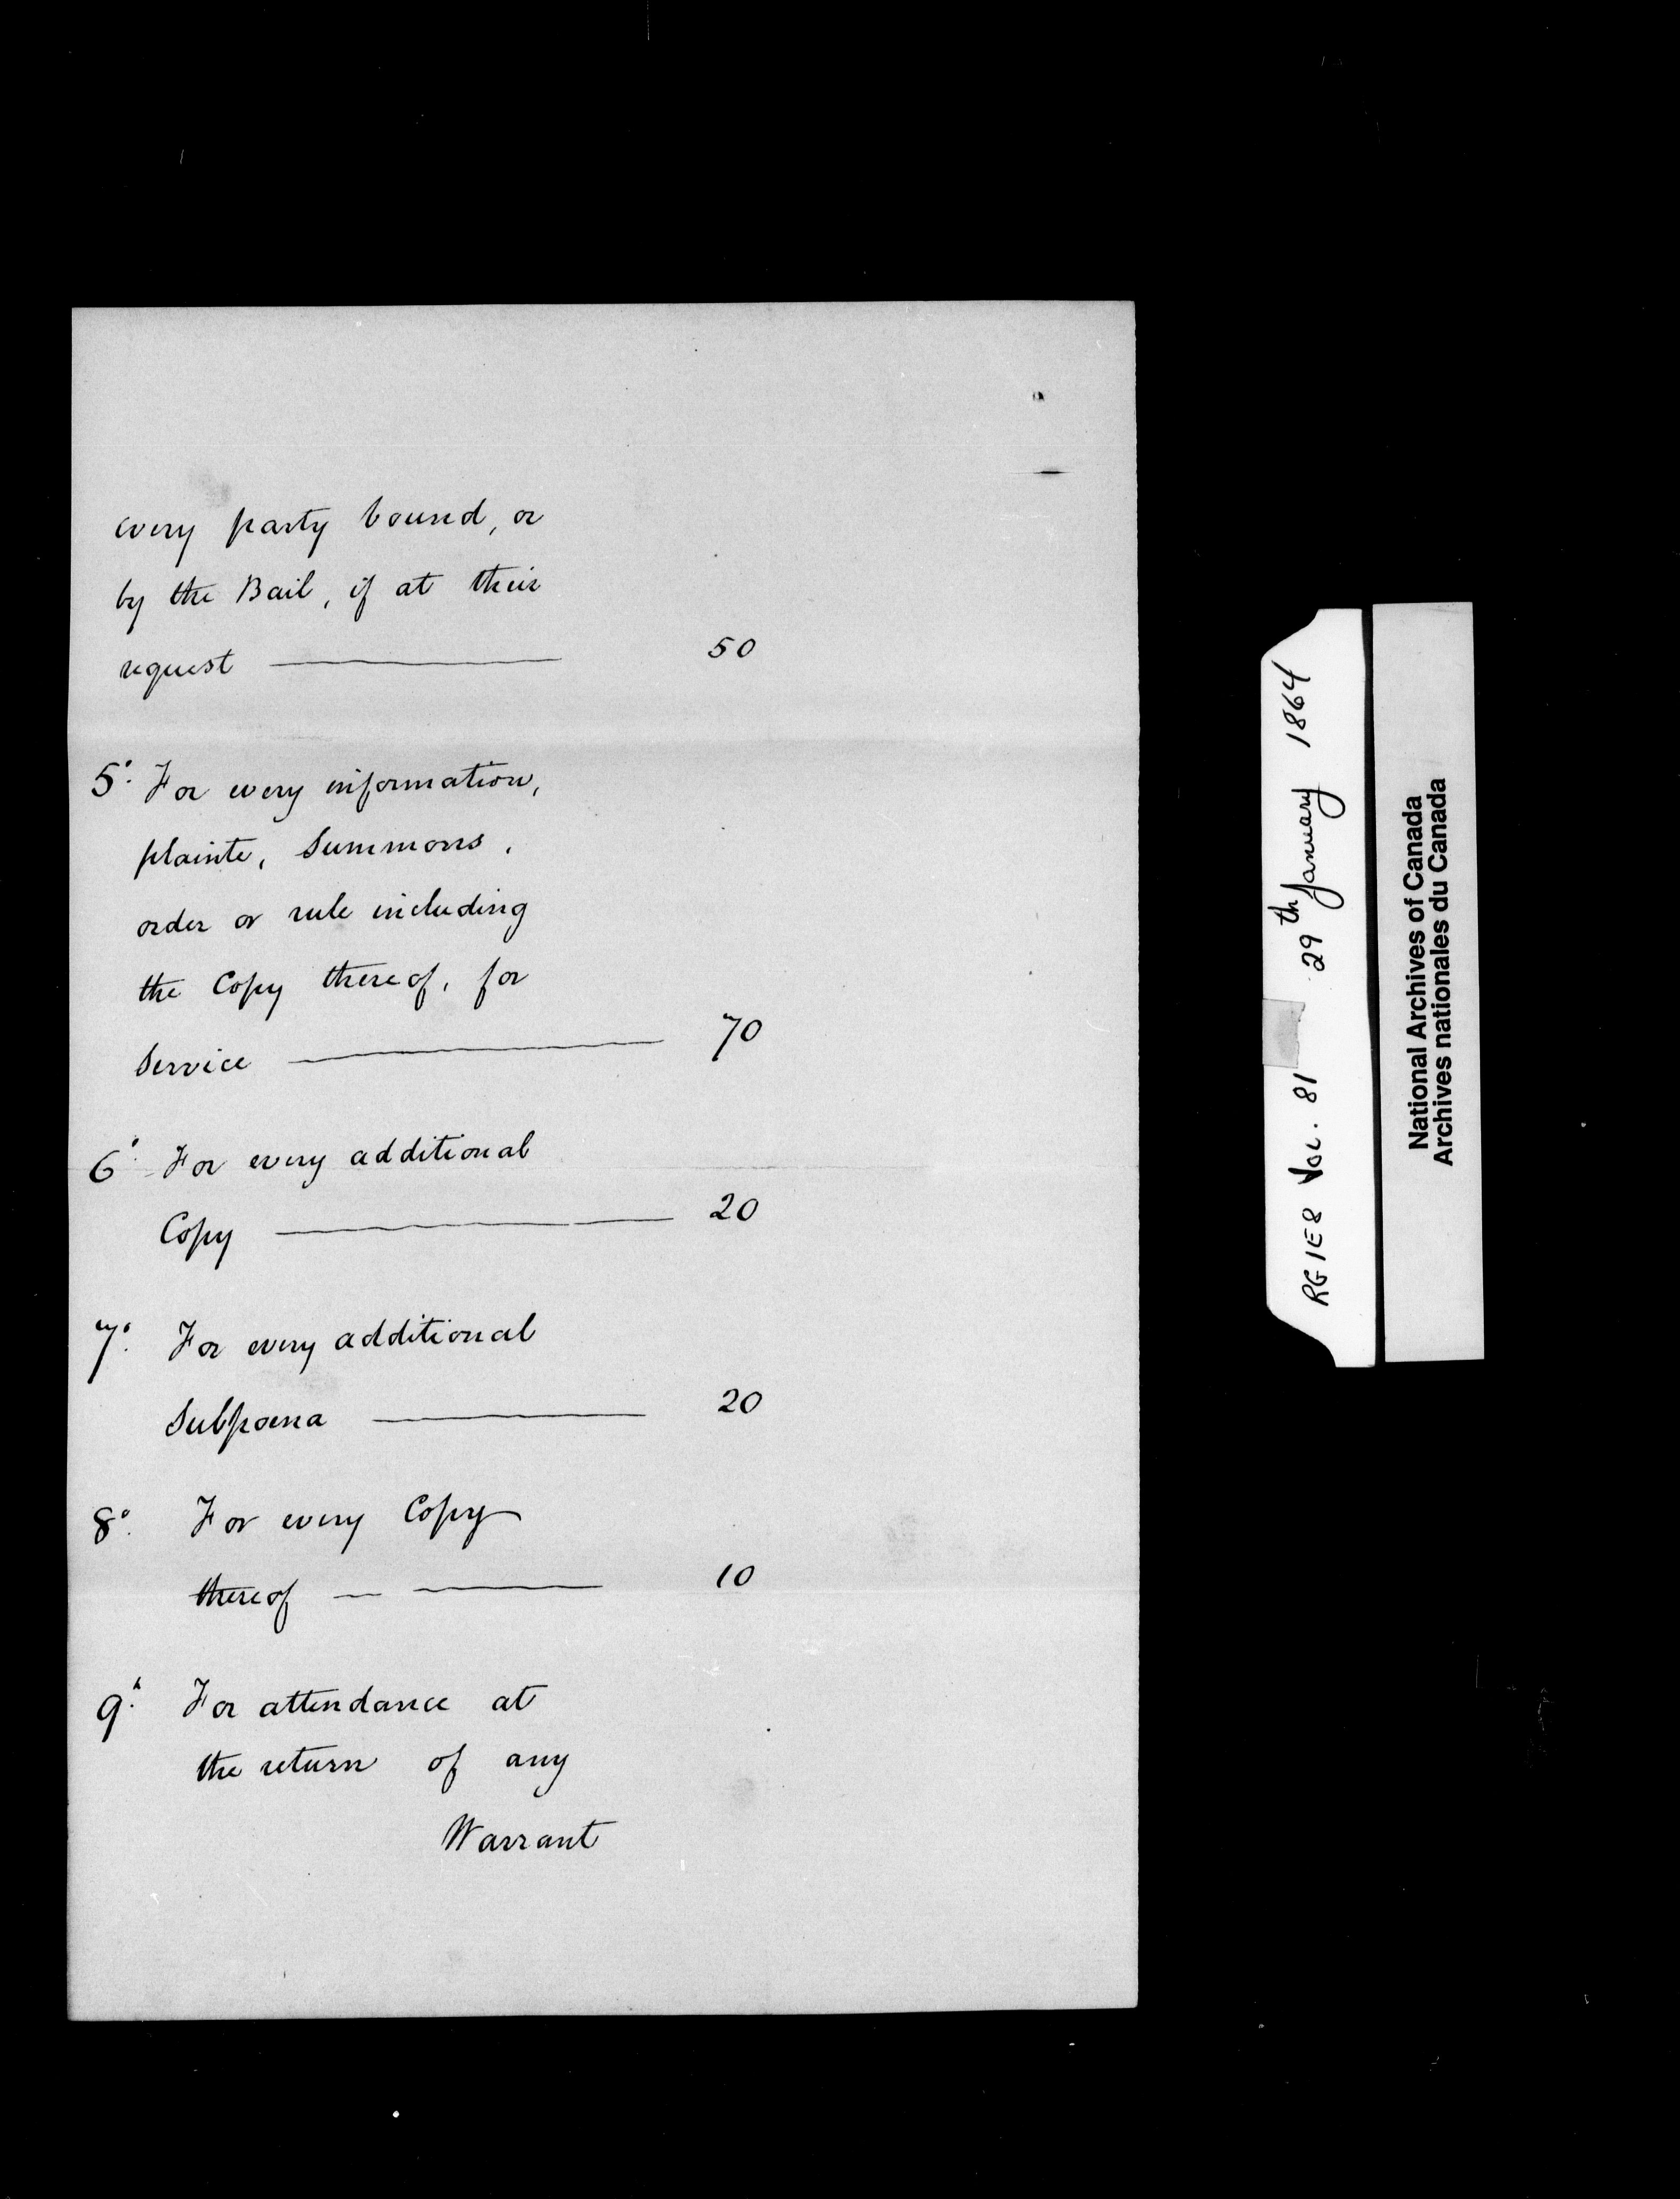 every party bound, or
by the Bail, if at their
request ———— 50
5° For every information,
plainte, Summons,
order or rule including
the Copy thereof, for
Service ———— 70
6° For every additional
Copy ———— 20
7° For every additional
Subpoena ———— 20
8° For every Copy
thereof — ——— 10
9° For attendance at
the return of any
Warrant
RG 1 E8 Vol. 81 29th January 1864
National Archives of Canada
Archives nationales du Canada